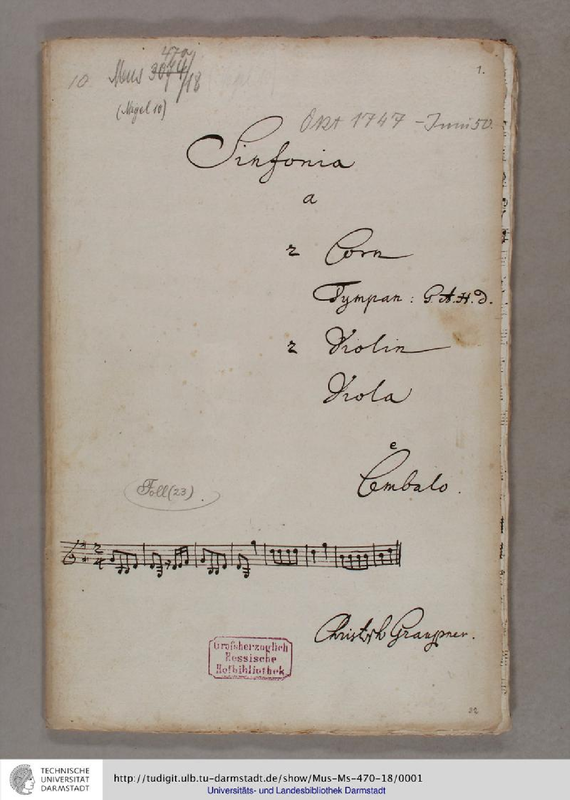 10 Mus 3074/18
470
(Nagel 10)
1.
Okt 1747 - Juni 50
Sinfonia
a
2 Corn
Tympan: G. A. H. d.
2 Violin
Viola
e
Cembalo.
Foll(23)
2
4
Christoph Graupner.
Großherzoglich
Hessische
Hofbibliothek
22
TECHNISCHE
UNIVERSITÄT
DARMSTADT
http://tudigit.ulb.tu-darmstadt.de/show/Mus-Ms-470-18/0001
Universitäts- und Landesbibliothek Darmstadt